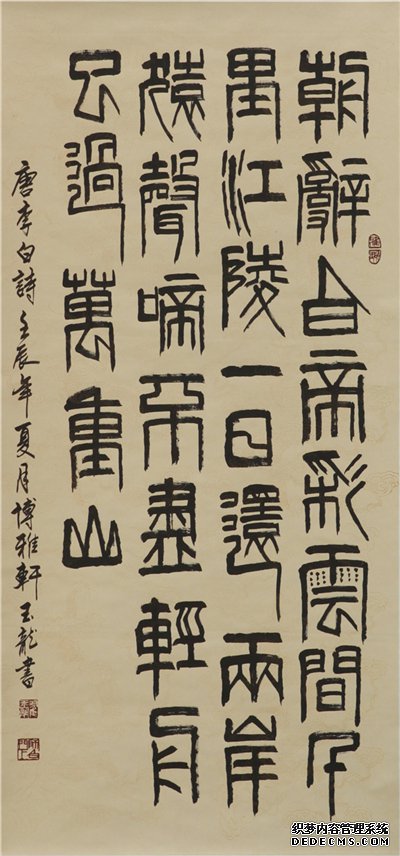 朝辭白帝彩雲間千
里江陵一日還兩岸
猿聲啼不盡輕舟
已過萬重山
唐李白詩壬辰年夏月博雅軒玉龍書
织梦内容管理系统
DEDECMS.COM